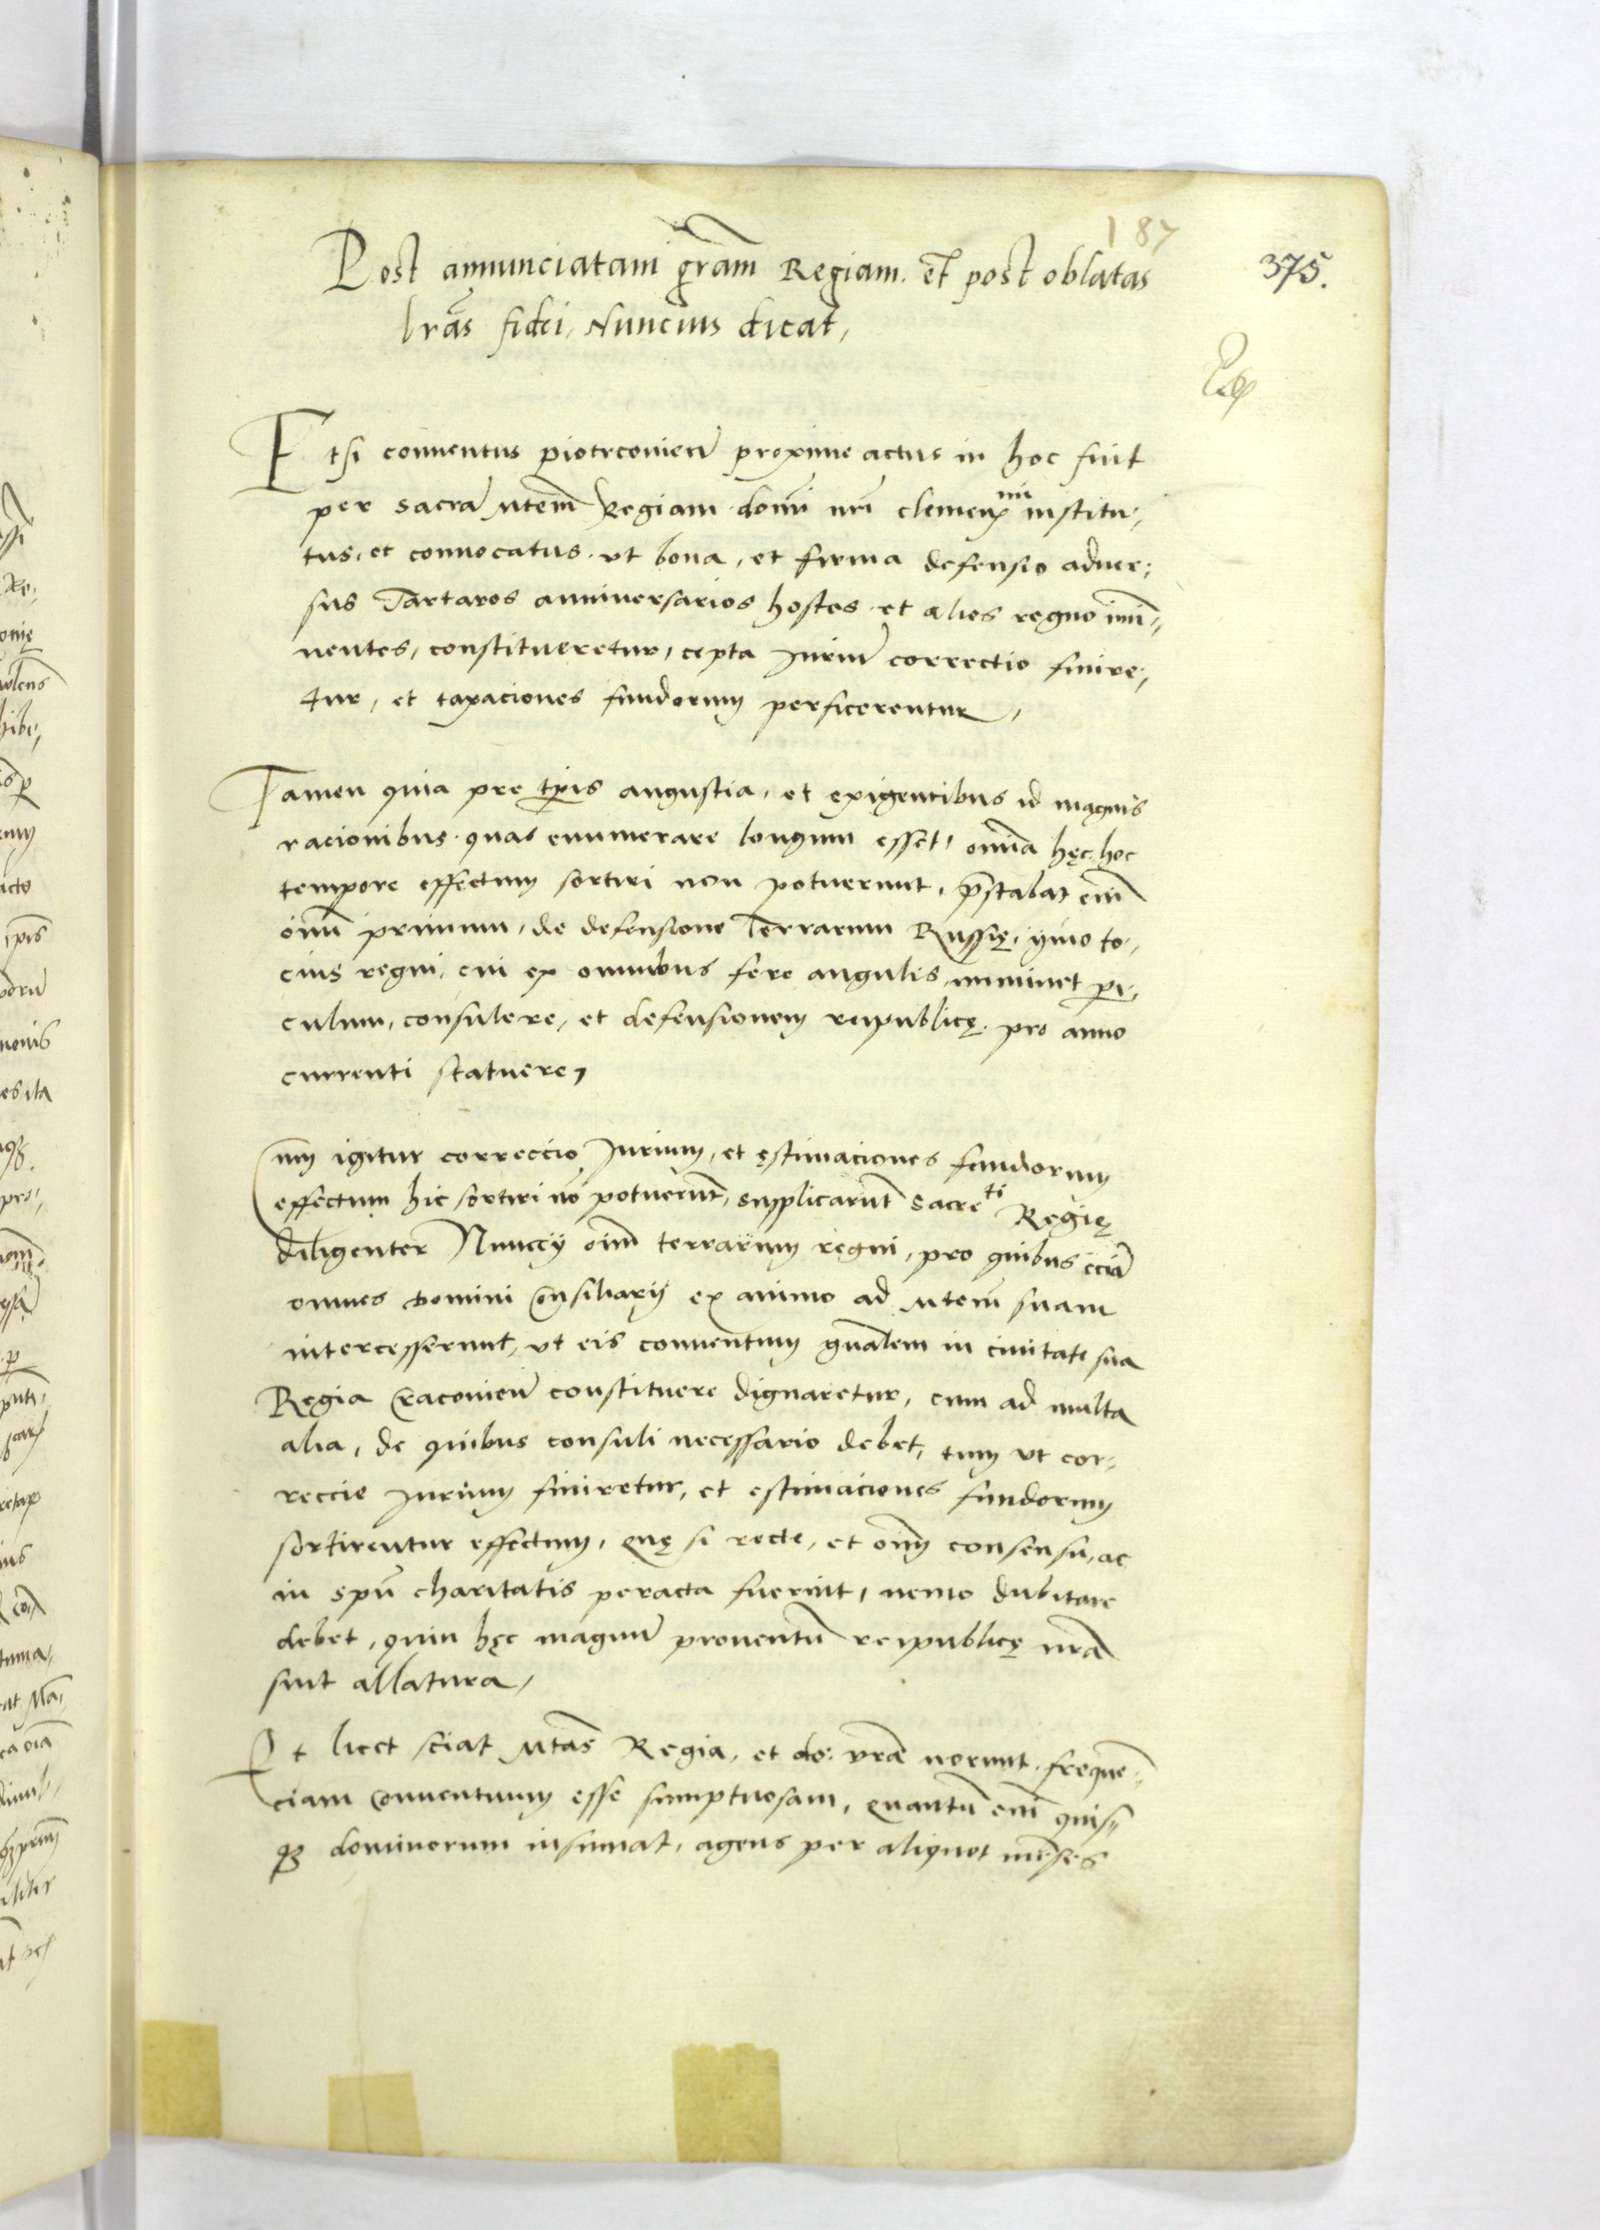 187
375.
Post annunciatam grãm Regiam. et post oblatas
lrãs fidei, Nuncius dicat,
Etsi conventus piotrcovieñ proxime actus in hoc fuit
per sacrã Mtem̃ Regiam dom̃i nr̃i institu-
tus, et convocatus. ut bona, et firma defensio adver-
sus Tartaros anniversarios hostes et alios regno im̃i-
nentes, constitueretur, cepta Juriũ correctio finire-
tur, et taxaciones fundorum perficerentur,
Tamen quia pre tp̃is angustia, et exigentibus id magnis
racionibus. quas enumerare longum esset, omñia hęc hoc
tempore effectum sortiri non potuerunt, p̃stabat em̃
oim̃ primum, de defensione Terrarum Russię, ymo to-
cius regni, cui ex omnibus fere angulis imminet peri-
culum, consulere, et defensionem reipublicę pro anno
currenti statuere,
Cum igitur correccio Jurium, et ęstimaciones fundorum
effectum hic sortiri nõ potuerũt, supplicarũt sacre ti Regię
diligenter Nunccij oim̃ terrarum regni, pro quibus eciã
omnes Domini Consiliarij ex animo ad Mtem̃ suam
intercesserunt, ut eis conventum gñalem in civitate sua
Regia Cracovieñ constituere dignaretur, cum ad multa
alia, de quibus consuli necessario debet, tum ut cor-
reccio Jurium finiretur, et estimaciones fundorum
sortirentur effectum, quę si recte, et oim̃ consensu, ac
in spũ charitatis peracta fuerint, nemo dubitare
debet, quin hęc magnũ proventũ reipublicę nr̃ã
sint allatura,
Et licet sciat Mtãs Regia, et do: vr̃ã norunt. frequẽ-
ciam Conventuum esse sumptuosam, quantũ em̃ quis-
q3 dominorum insumat, agens per aliquot mẽses